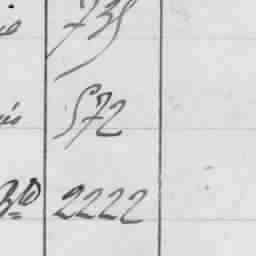 735
572
3D 2222